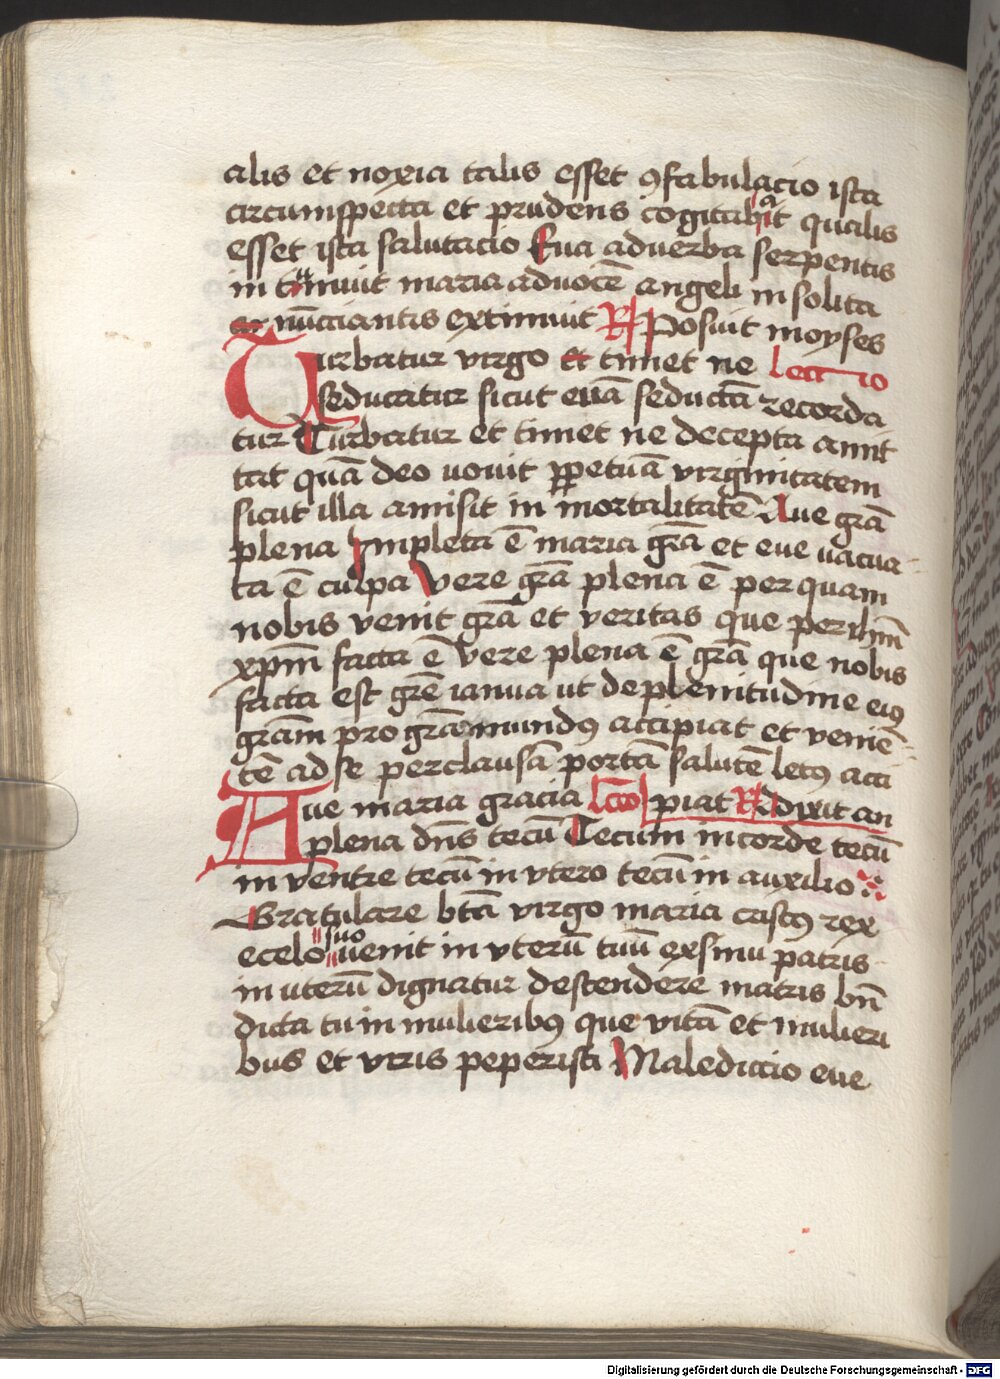 alis et noxia talis esset ꝯfabulacio ista
circumspecta et prudens cogitabat qualis
esset ista salutacio Eua ad verba serpentis
in timuit maria ad vocē angeli insolita
nūcciantis extimuit ℟ Posuit moyses
Turbatur virgo et timet ne lectio
seducatur sicut euā seductā recorda
tur Turbatur et timet ne decepta amit
tat quā deo vouit ꝑpetuā virginitatem
sicut illa amisit in mortalitatē Aue grā
plena Impleta ē maria grā et eue uacua
ta ē culpa Vere grā plena ē per quam
nobis venit grā et veritas que per ihm̄
xpm̄ facta ē Vere plena ē grā que nobis
facta est grē ianua ut de plenitudine eiꝰ
grām pro grā mundꝰ accipiat et venie
tē ad se per clausā portā salutē letꝰ acci
Aue maria gracia lc̄o piat ℟ Dixit an
plena dn̄s tecū Tecum in corde tecū
in ventre tecū in vtero tecū in auxilio
Gratulare btā virgo maria cristꝰ rex
e celo suo uenit in vterū tuū ex sinu patris
in uterū dignatur descendere matris bn̄
dicta tu in mulieribꝰ que vitā et mulieri
bus et viris peperisti Maledictio eue
Digitalisierung gefördert durch die Deutsche Forschungsgemeinschaft - DFG